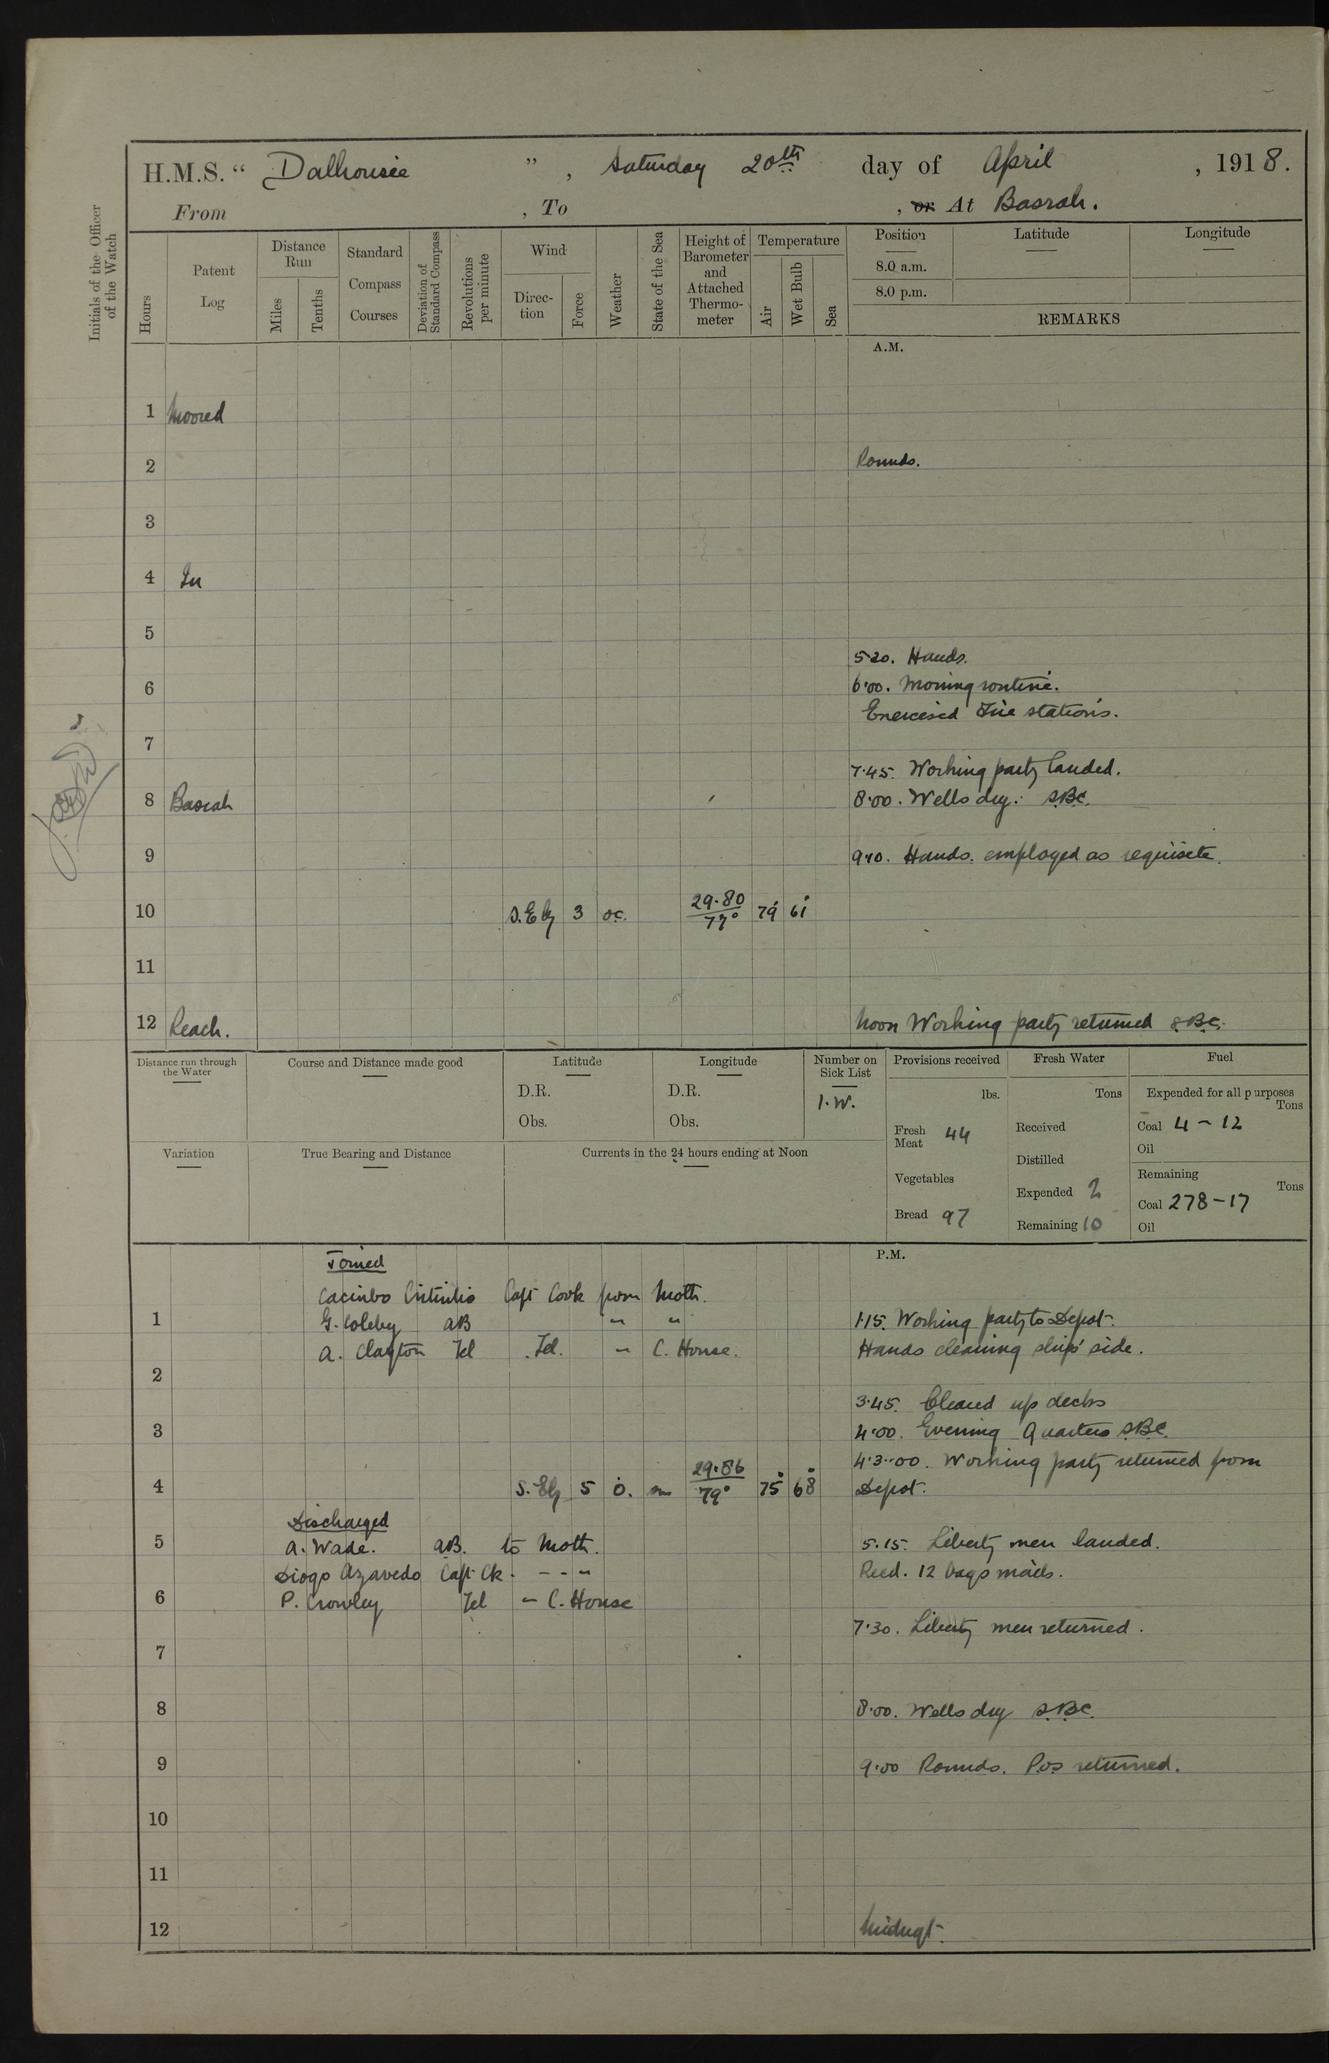 H.M.S. “ Dalhousie ” , Saturday 20th day of April , 1918.
From , To , or At Basrah.
Initials of the Officer of the Watch
Hours
Patent Log
Distance Run
Miles
Tenths
Standard Compass Courses
Deviation of Standard Compass
Revolutions per minute
Wind
Direc-tion
Force
Weather
State of the Sea
Height of Barometer and Attached Thermo-meter
Temperature
Air
Wet Bulb
Sea
Position
8.0 a.m.
8.0 p.m.
Latitude
Longitude
REMARKS
A.M.
1 Moored
2 Rounds.
3
4 In
5
5.20. Hands.
6 6.00. Morning routine.
Exercised Fire stations.
7
7.45. Working party landed.
8 Basrah 8.00. Wells dry. S.B.C.
9 9.10. Hands employed as requisite.
10 S.Ely 3 oc. 29.80 77° 79° 61°
11
12 Reach. Noon Working party returned S.B.C.
Distance run through the Water
Course and Distance made good
Latitude
D.R.
Obs.
Longitude
D.R.
Obs.
Number on Sick List
1.W.
Provisions received
lbs.
Fresh Meat 44
Vegetables
Bread 97
Fresh Water
Tons
Received
Distilled
Expended 2
Remaining 10
Fuel
Expended for all purposes
Tons
Coal 4-12
Oil
Remaining
Tons
Coal 278-17
Oil
Variation
True Bearing and Distance
Currents in the 24 hours ending at Noon
P.M.
Joined
Capt Cook from Moth.
1 G. Coleby AB " " 1.15. Working party to Depot.
A. Clayton Tel Tel. " C. House. Hands cleaning ship's side.
2
3.45. Cleared up decks
3 4.00. Evening Quarters S.B.C.
4.3.00. Working party returned from
4 S.Ely 5 o. m 29.86 79° 75° 68° Depot.
Discharged
5 A. Wade. AB. to Moth. 5.15. Liberty men landed.
Diogo Azavedo Capt. Ck. - - " Recd. 12 bags mails.
6 P. Crowley Tel " C. House
7.30. Liberty men returned.
7
8 8.00. Wells dry S.B.C.
9 9.00 Rounds. P.O.s returned.
10
11
12 Midngt.